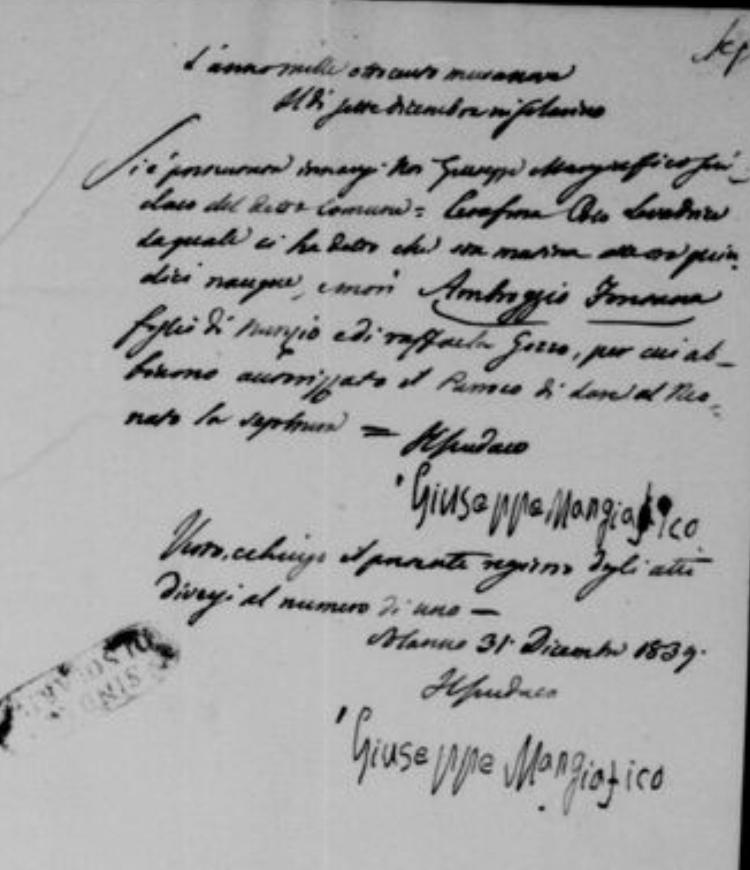 L'anno mille ottocento trentanove
Il dì sette dicembre in Solarino
Si è presentata innanzi Noi Giuseppe Mangiafico Sin-
daco del detto Comune = Serafina Levatrice
la quale ci ha detto che sta matina alle ore quin-
dici nacque, e morì Ambroggio Fontana
figlio di Nunzio e di raffaela Gozzo, per cui ab-
biamo autorizzato il Parroco di dare al Neo=
nato la sepoltura = Il Sindaco
Giuseppe Mangiafico
Visto, e chiuso il presente registro degli atti
diversi al numero di uno —
31 Dicembre 1839.
Il Sindaco
Giuseppe Mangiafico
SIND